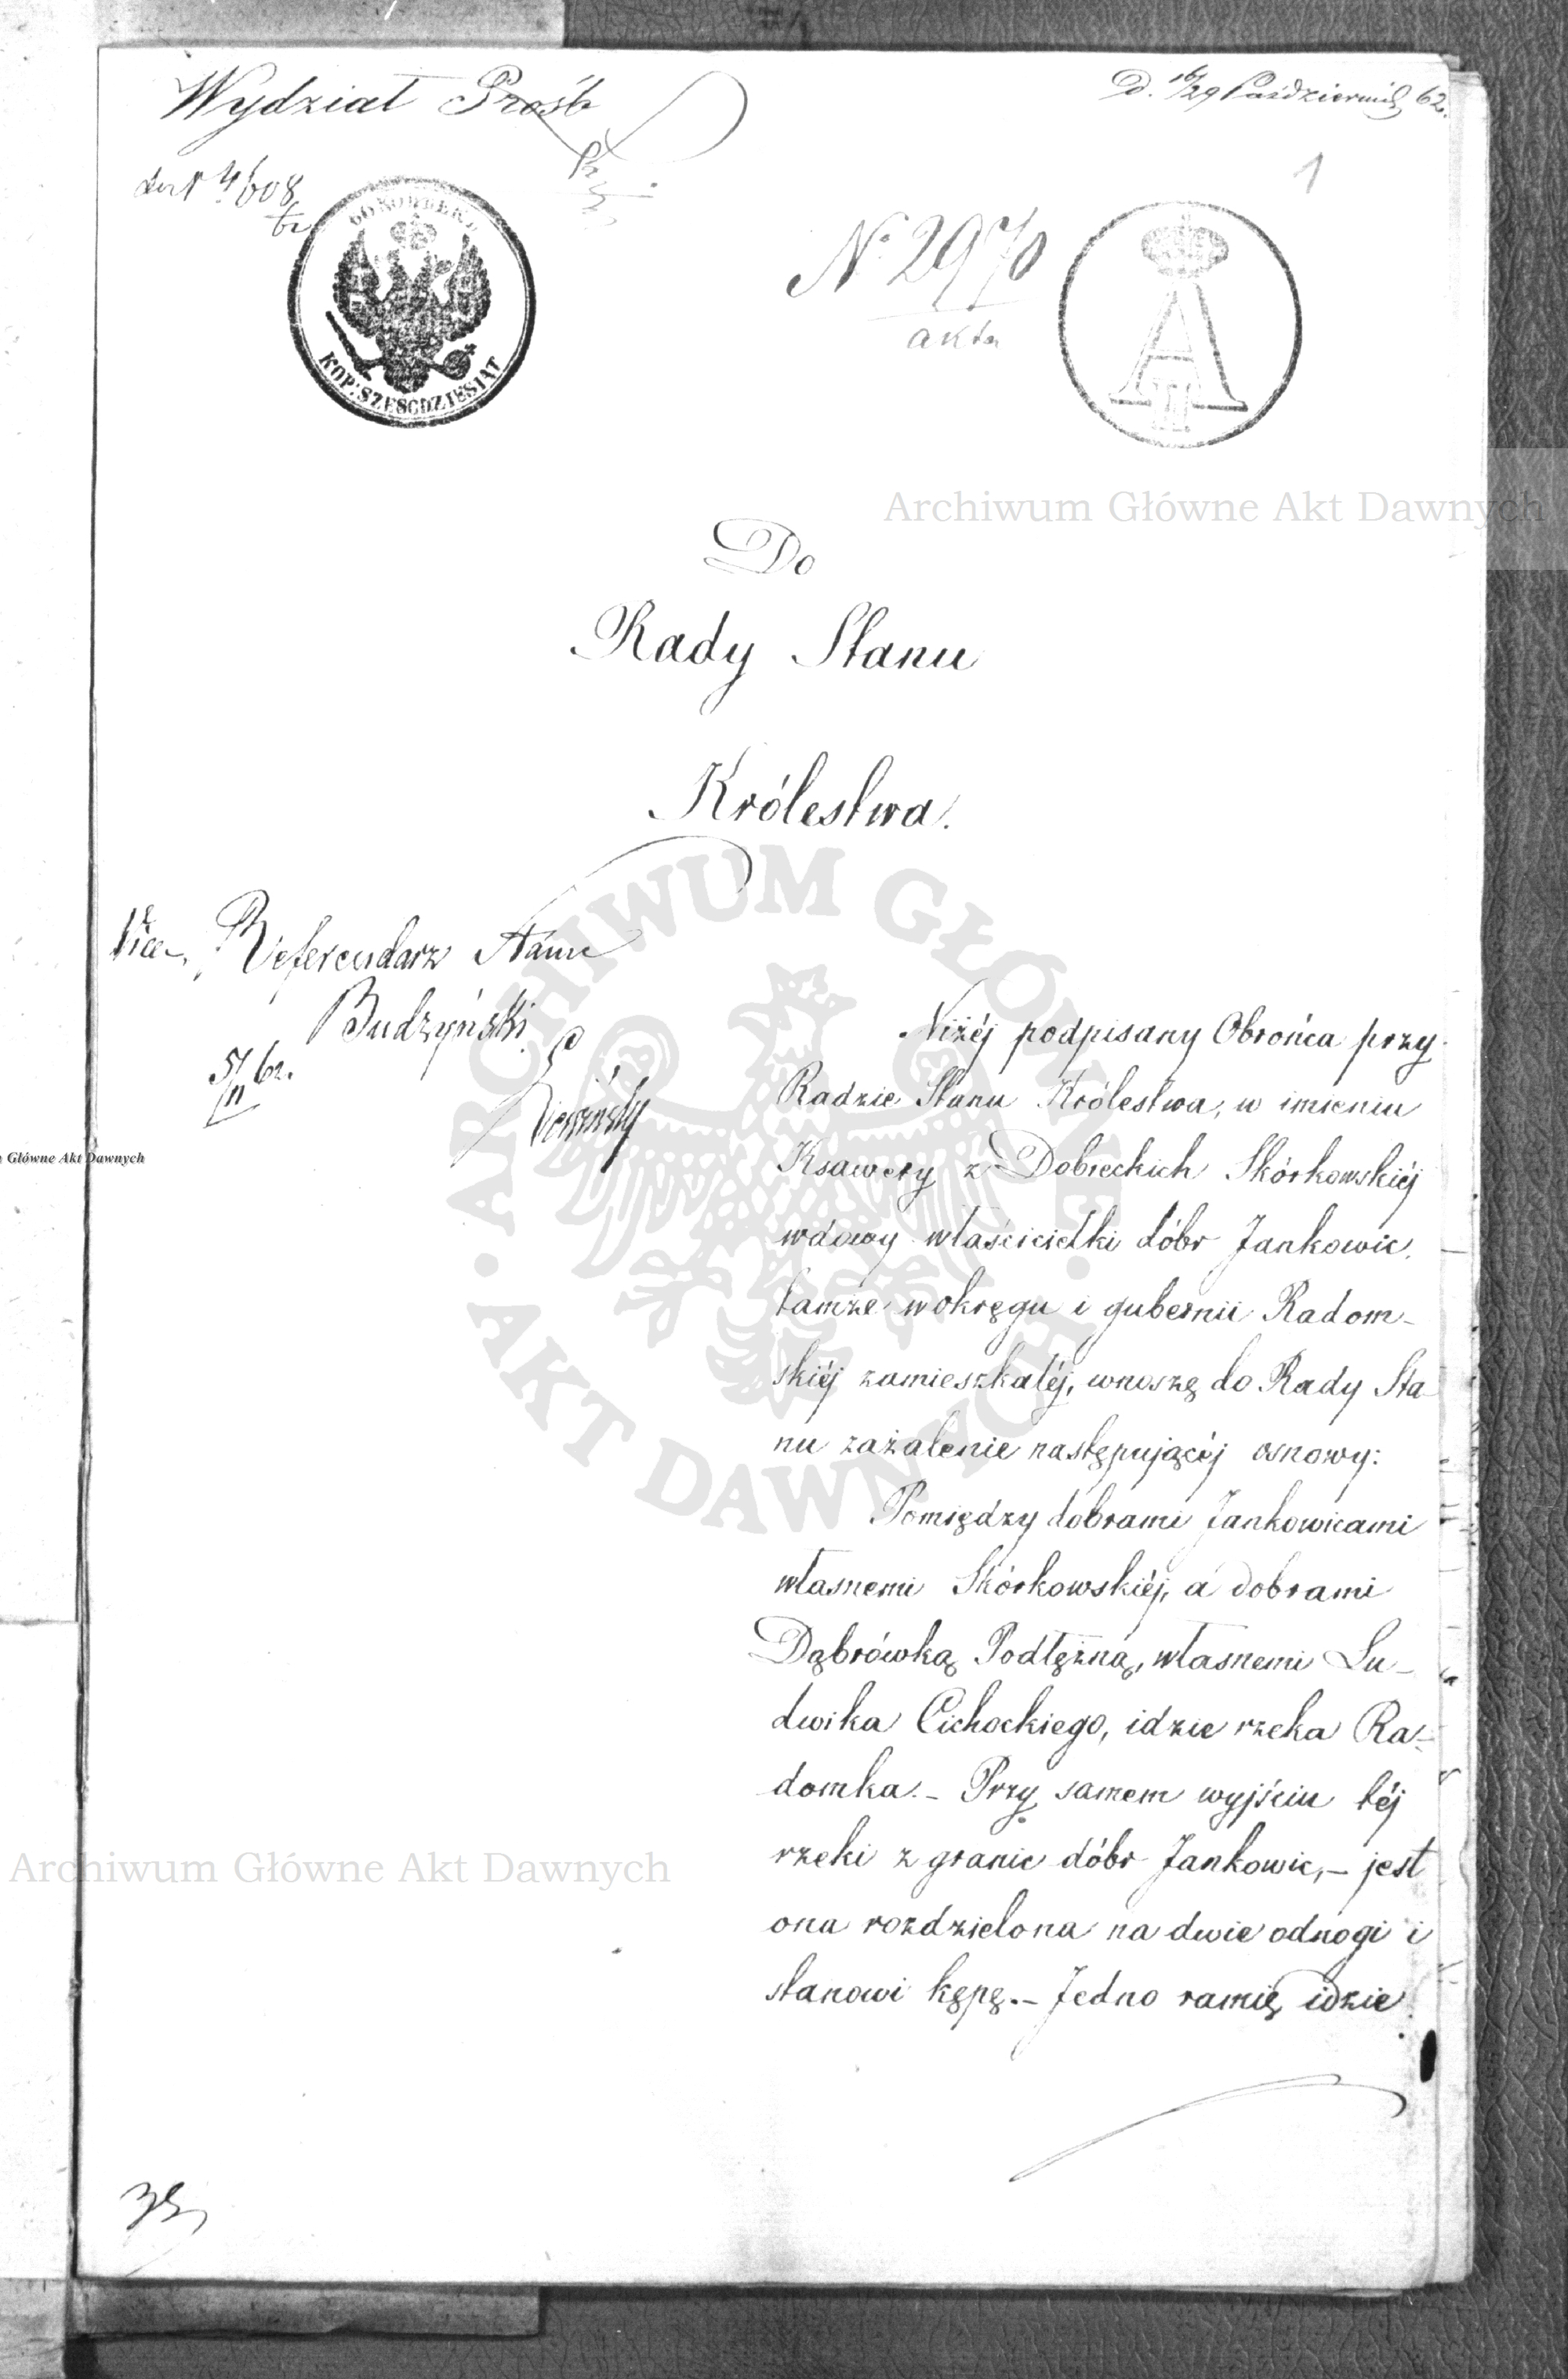 Wydział Próśb
D. 16/29 Październik 62.
1
4608
62
60 КОПѢЕКЪ
KOP: SZEŚĆDZIESIĄT
A II
N° 2970
akta
Archiwum Główne Akt Dawnych
Do
Rady Stanu
Królestwa.
Vice Referendarz Stanu
Budzyński
5/11 62.
ARCHIWUM GŁÓWNE
AKT DAWNYCH
Główne Akt Dawnych
Niżéj podpisany Obrońca przy
Radzie Stanu Królestwa, w imieniu
Ksawery z Dobieckich Skórkowskiéj
wdowy właścicielki dóbr Jankowic.
tamże w okręgu i gubernii Radom-
skiéj zamieszkałéj, wnoszę do Rady Sta
nu zażalenie następującéj osnowy:
Pomiędzy dobrami Jankowicami
własnemi Skórkowskiéj, a dobrami
Dąbrówką Podłężną, własnemi Lu-
dwika Cichockiego, idzie rzeka Ra-
domka.- Przy samem wyjściu téj
rzeki z granic dóbr Jankowic,- jest
ona rozdzielona na dwie odnogi i
stanowi kępę.- Jedno ramię idzie
Archiwum Główne Akt Dawnych